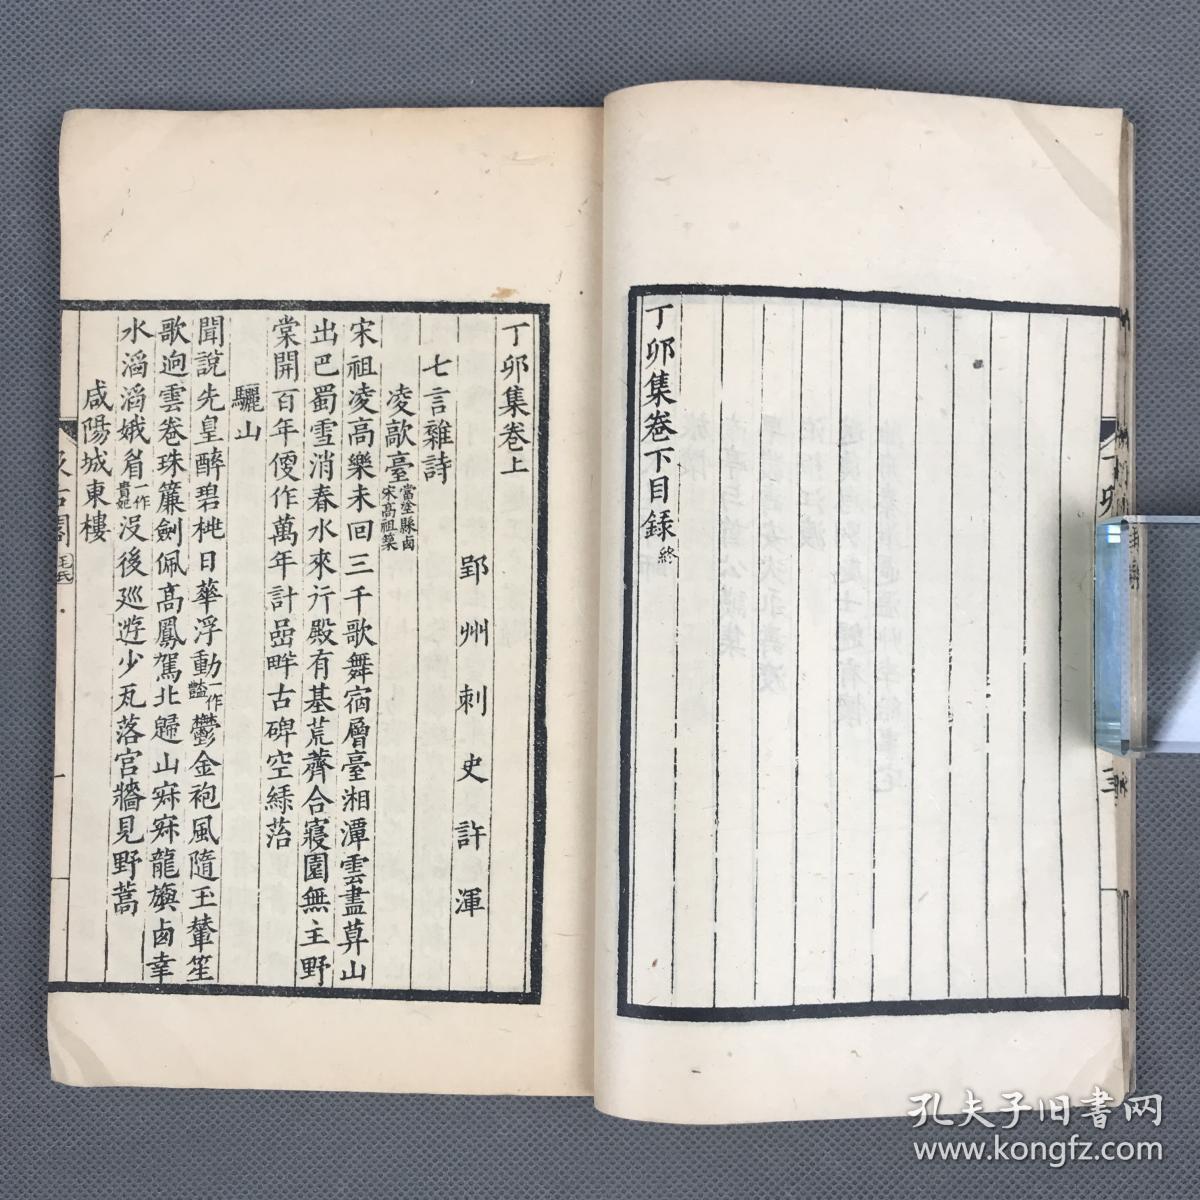 丁卯集卷下目録終
丁卯集卷上
郢州刺史許渾
七言雜詩
凌歊臺當塗縣西宋高祖築
宋祖凌高樂未回三千歌舞宿層臺湘潭雲盡莫山
出巴蜀雪消春水來行殿有基荒薺合寢園無主野
棠開百年便作萬年計嵒畔古碑空綠苔
驪山
聞說先皇醉碧桃日華浮動一作豔鬱金袍風隨玉輦笙
歌逈雲卷珠簾劍佩高鳳駕北歸山寂寂龍旟西幸
水滔滔娥眉一作貴妃沒後廵遊少瓦落宮牆見野蒿
咸陽城東樓
汲古閣
毛氏
一
丁卯
三
孔夫子旧书网
www.kongfz.com